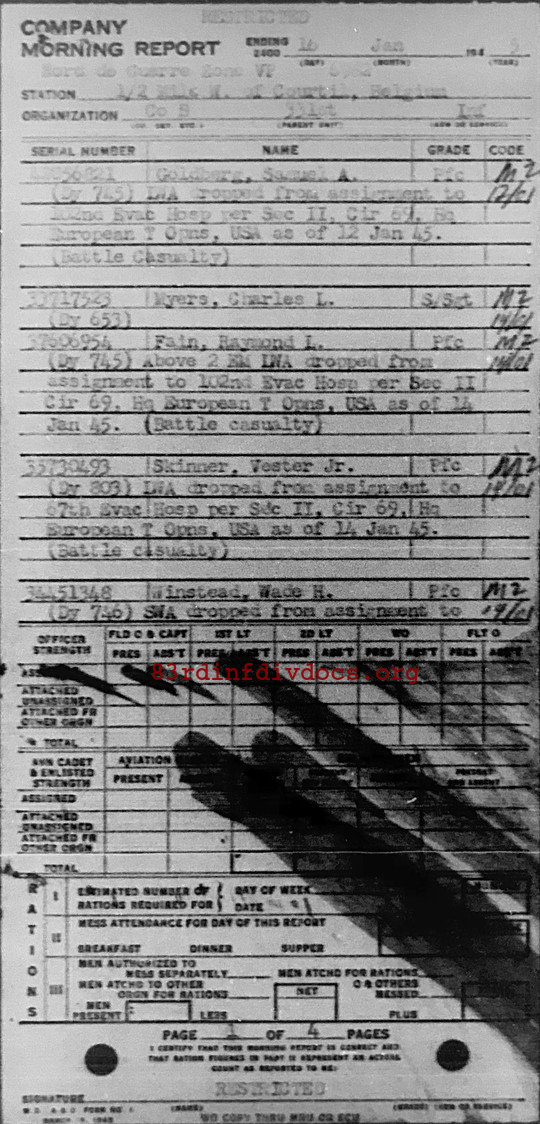 RESTRICTED
COMPANY
MORNING REPORT ENDING 2400 16 Jan 194 5
(DAY) (MONTH) (YEAR)
Nord de Guerre Zone VP
STATION 1/2 Mile W. of Courtil, Belgium
ORGANIZATION Co 331st Inf
(PARENT UNIT) (ARM OR SERVICE)
SERIAL NUMBER NAME GRADE CODE
Goldberg, Samuel A. Pfc M2
(Dy 745) LWA dropped from assignment to 12/01
102nd Evac Hosp per Sec II, Cir 69, Hq
European T Opns, USA as of 12 Jan 45.
(Battle Casualty)
33717523 Myers, Charles L. S/Sgt M2
(Dy 653) 14/01
37606954 Fain, Raymond L. Pfc M2
(Dy 745) Above 2 EM LWA dropped from 14/01
assignment to 102nd Evac Hosp per Sec II
Cir 69, Hq European T Opns, USA as of 14
Jan 45. (Battle casualty)
35730493 Skinner, Vester Jr. Pfc M2
(Dy 803) LWA dropped from assignment to 14/01
67th Evac Hosp per Sec II, Cir 69, Hq
European T Opns, USA as of 14 Jan 45.
(Battle casualty)
34451348 Winstead, Wade H. Pfc M2
(Dy 746) SWA dropped from assignment to 14/01
OFFICER STRENGTH FLD O & CAPT 1ST LT 2D LT WO FLT O
PRES ABS'T PRES ABS'T PRES ABS'T PRES ABS'T PRES ABS'T
83rdinfdivdocs.org
ATTACHED UNASSIGNED
ATTACHED FR OTHER ORGN
TOTAL
AVN CADET & ENLISTED STRENGTH AVIATION
PRESENT
ASSIGNED
ATTACHED UNASSIGNED
ATTACHED FR OTHER ORGN
TOTAL
RATIONS
I ESTIMATED NUMBER OF RATIONS REQUIRED FOR DAY OF WEEK
DATE
II MESS ATTENDANCE FOR DAY OF THIS REPORT
BREAKFAST DINNER SUPPER
III MEN AUTHORIZED TO MESS SEPARATELY MEN ATCHD FOR RATIONS
MEN ATCHD TO OTHER ORGN FOR RATIONS NET O & OTHERS MESSED
MEN PRESENT LESS PLUS
PAGE 1 OF 4 PAGES
I CERTIFY THAT THIS MORNING REPORT IS CORRECT AND
THAT RATION FIGURES IN PART II REPRESENT AN ACTUAL
COUNT AS REPORTED TO ME:
RESTRICTED
SIGNATURE
(NAME) (GRADE) (ARM OR SERVICE)
W.D. A.G.O. FORM NO. 1